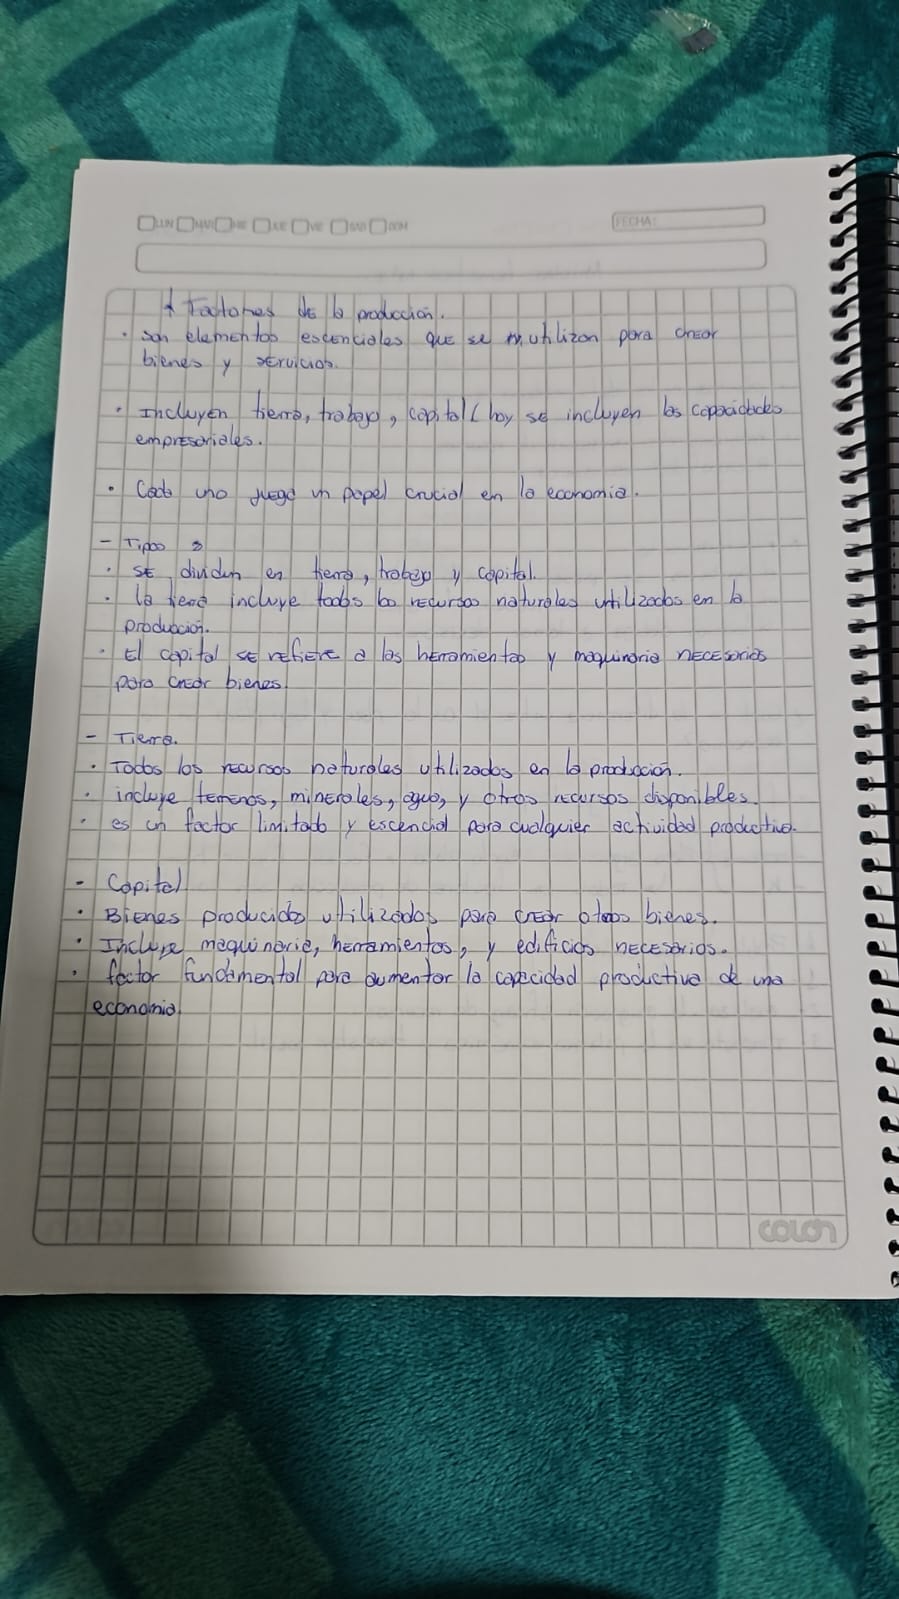 LUN MAR MIE JUE VIE SAB DOM FECHA:
* Factores de la producción.
· son elementos escenciales que se utilizan para crear
bienes y servicios.
· Incluyen tierra, trabajo, capital ( hoy se incluyen las capacidades
empresariales.
· Cada uno juega un papel crucial en la economia.
- Tipos :
· SE dividen en tierra, trabajo y capital.
· la tierra incluye todos los recursos naturales utilizados en la
producción.
· El capital se refiere a las herramientas y maquinaria necesarias
para crear bienes
- Tierra.
· Todos los recursos naturales utilizados en la producción.
· incluye terrenos, minerales, agua, y otros recursos disponibles.
· es un factor limitado y escencial para cualquier actividad productiva.
- Capital
· Bienes producidos utilizados para crear otros bienes.
· Incluye maquinaria, herramientas, y edificios necesarios.
· factor fundamental para aumentar la capacidad productiva de una
economia.
colón